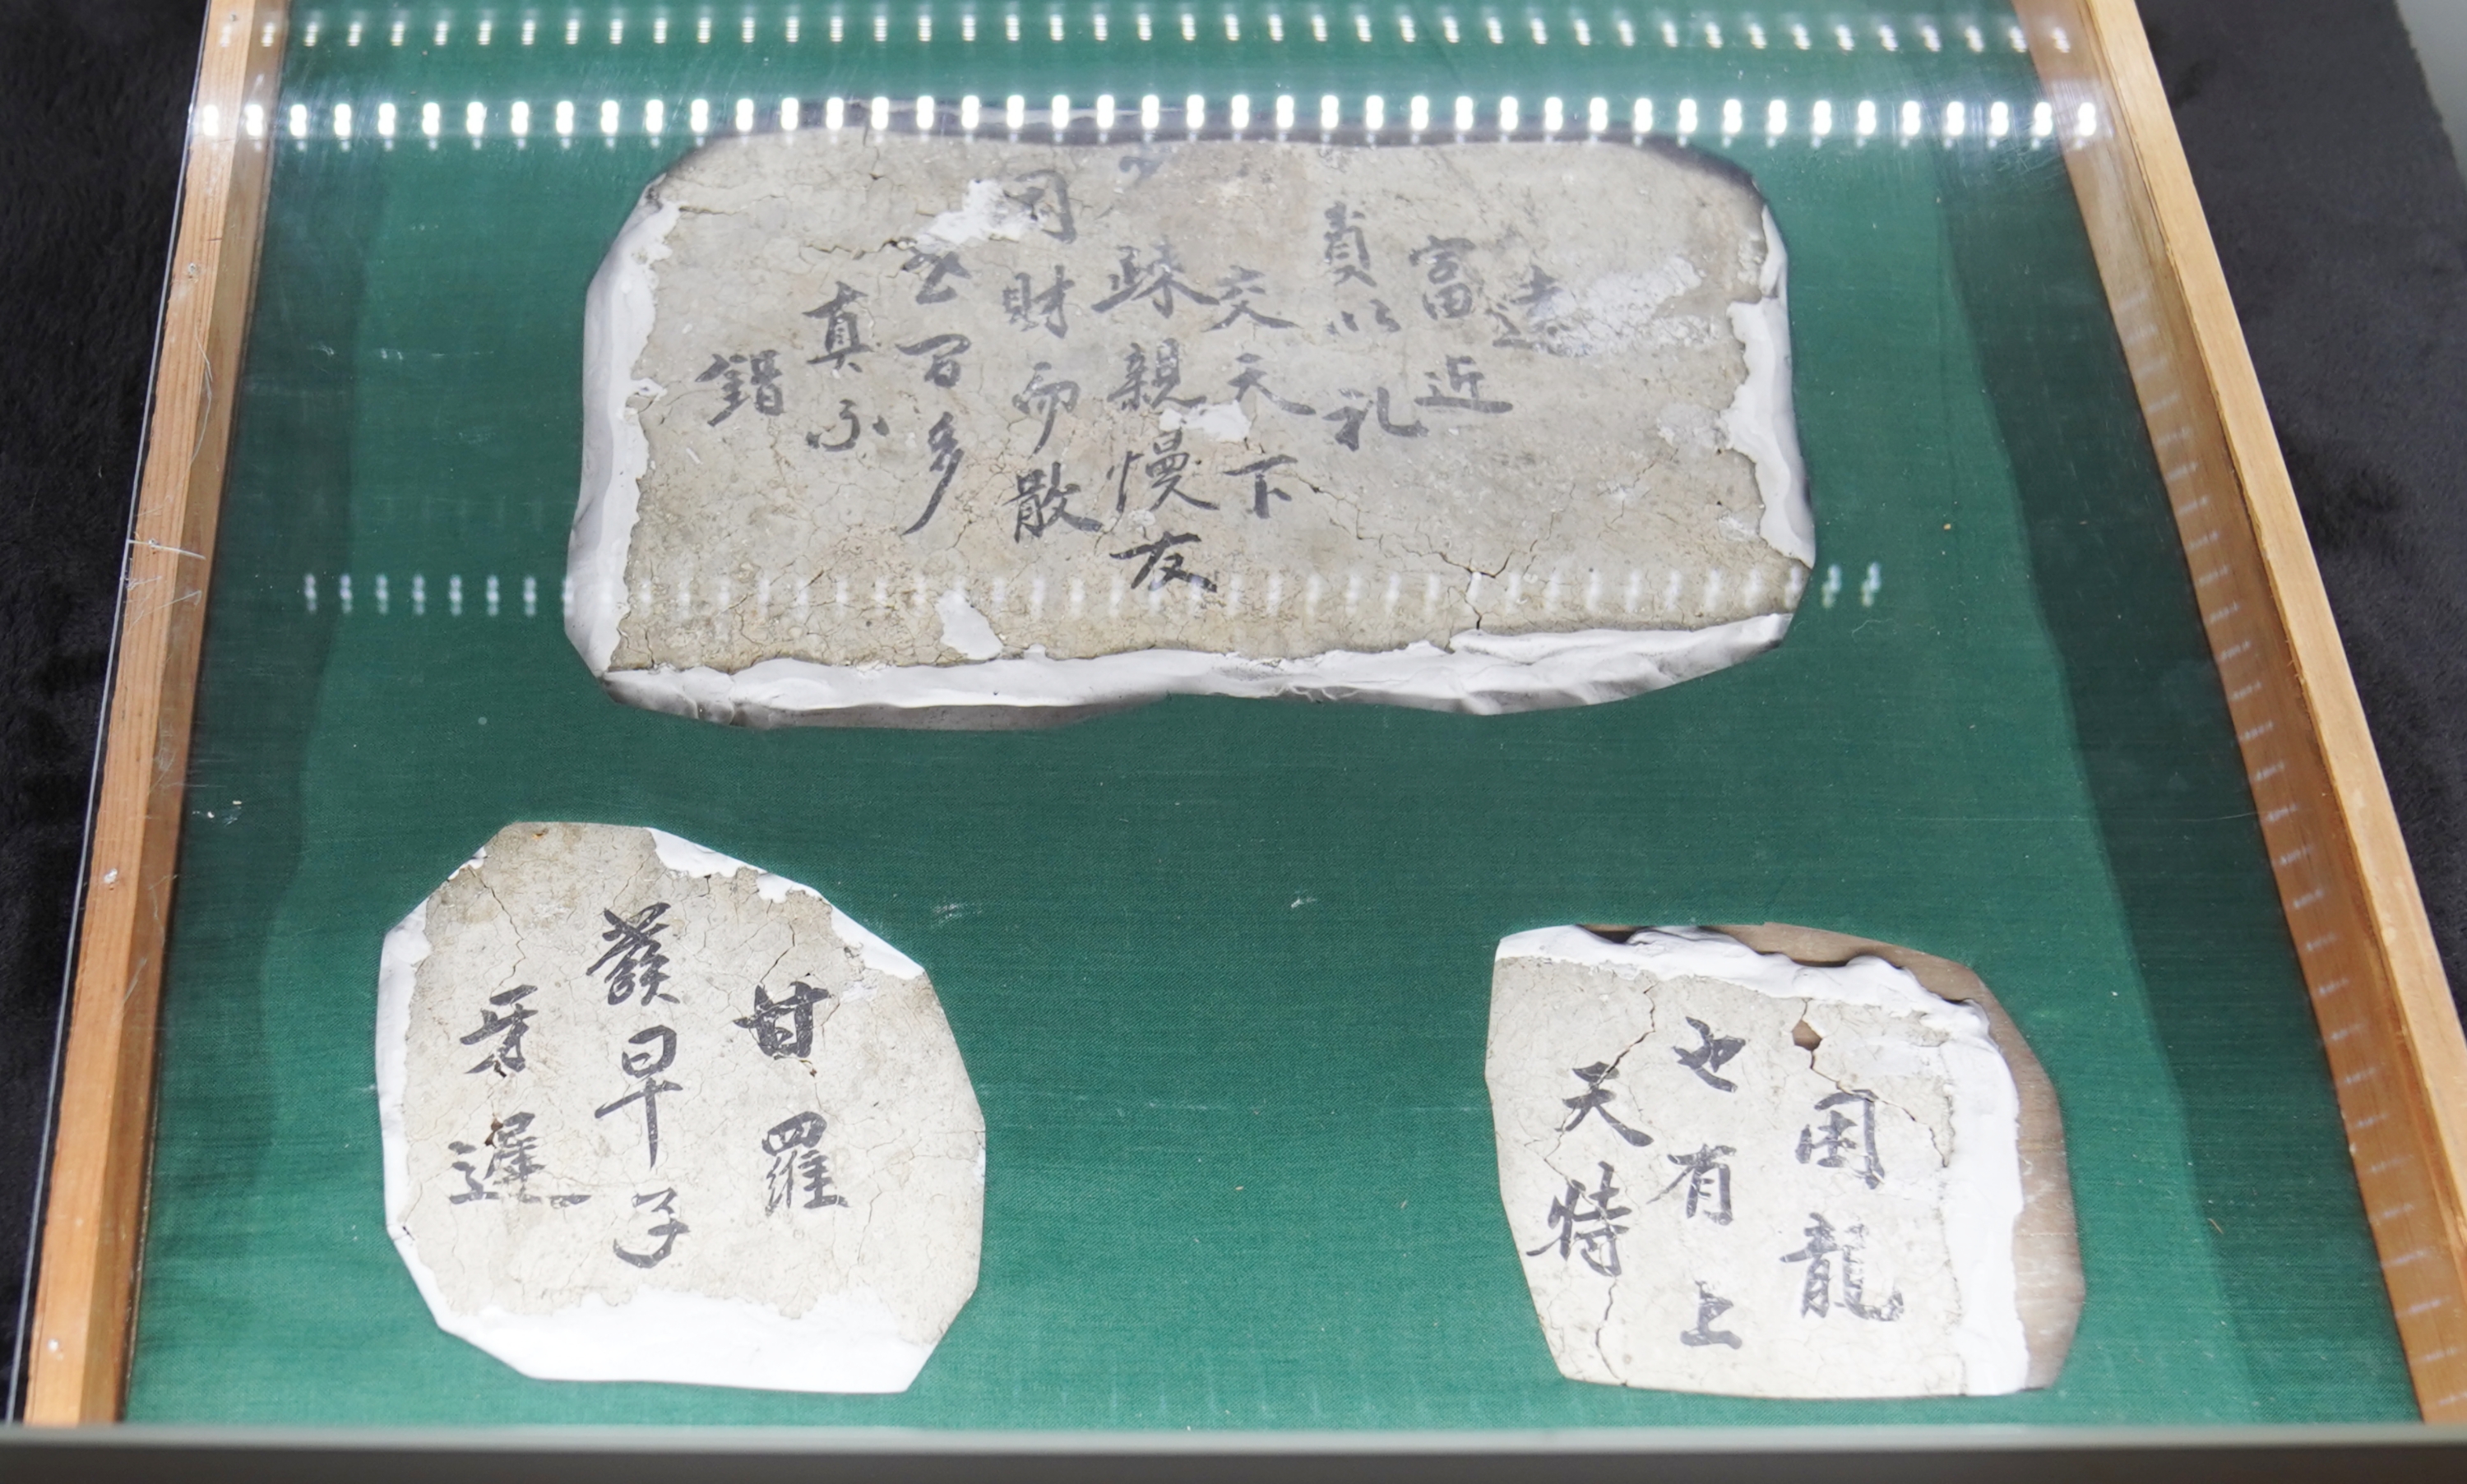 遠
富近
貧以礼
交天下
疎親慢友
因財而散
多
真不
錯
甘羅
發早子
牙遲
困龍
也有上
天特